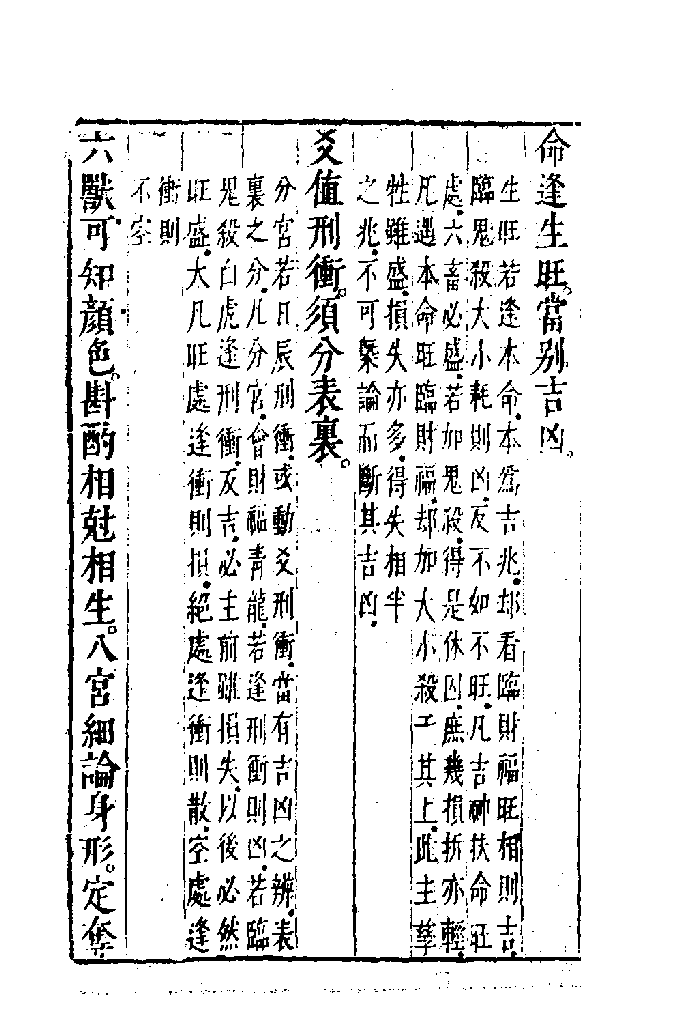 命逢生旺。當别吉凶。
生旺若逢本命。本爲吉兆。却看臨財福旺相則吉。
臨鬼殺大小耗則凶。反不如不旺。凡吉神扶命旺
處。六畜必盛。若如鬼殺。得是休囚。庶幾損折亦輕。
凡遇本命旺臨財福。却加大小殺于其上。此主孳
牲雖盛。損失亦多。得失相半
之兆。不可槩論而斷其吉凶。
爻值刑衝。須分表裏。
分宮若日辰刑衝。或動爻刑衝。當有吉凶之辨。表
裏之分。凡分宮。會財福青龍。若逢刑衝則凶。若臨
鬼殺白虎逢刑衝。反吉。必主前雖損失。以後必然
旺盛。大凡旺處逢衝則損。絕處逢衝則散。空處逢
衝則
不空
六獸可知顔色。斟酌相尅相生。八宮細論身形。定奪